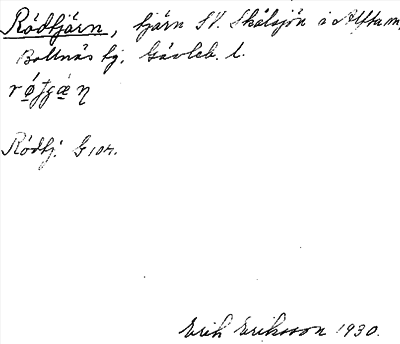 Rödtjärn, tjärn SV. Skålsjön i Alfta sn,
Bollnäs tg. Gävleb. l.
Rödtj. G 104.
Erik Eriksson 1930.